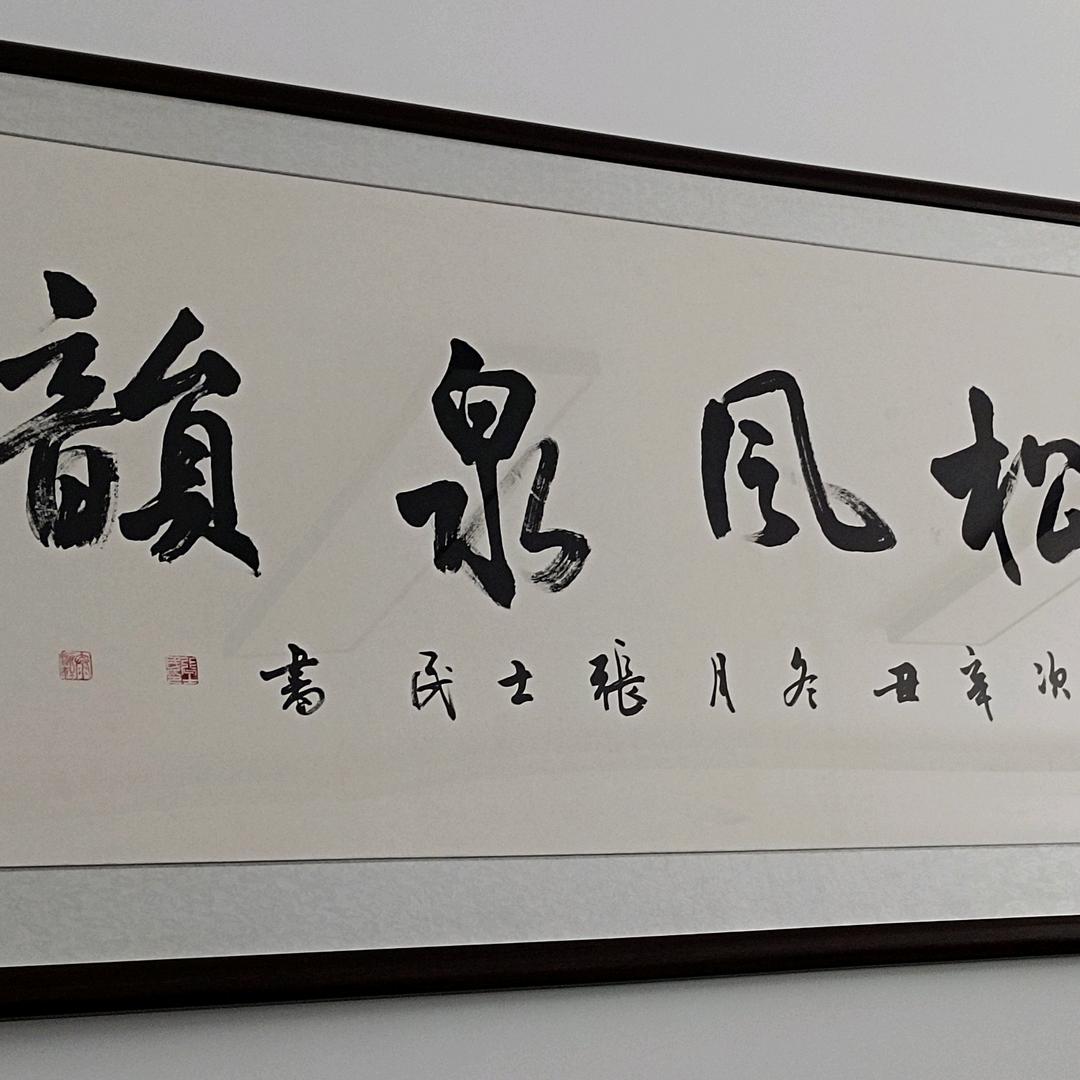 松風泉韻
次辛丑冬月張士民書